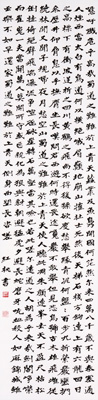 噫吁嚱危乎高哉蜀道之難難於上青天蠶叢及魚鳧開國何茫然爾來四萬八千歲不與秦塞通
人煙西當太白有鳥道可以橫絕峨眉巔地崩山摧壯士死然後天梯石棧相鉤連上有六龍回日
之高標下有衝波逆折之回川黃鶴之飛尚不得過猿猱欲度愁攀援青泥何盤盤百步九折縈巖巒捫
參歷井仰脅息以手撫膺坐長嘆問君西遊何時還畏途巉巖不可攀但見悲鳥號古木雄飛雌從繞林
間又聞子規啼夜月愁空山蜀道之難難於上青天使人聽此凋朱顏連峰去天不盈尺枯松
倒掛倚絕壁飛湍瀑流爭喧豗砯崖轉石萬壑雷其險也如此嗟爾遠道之人胡為乎來哉劍閣崢嶸
而崔嵬一夫當關萬夫莫開所守或匪親化為狼與豺朝避猛虎夕避長蛇磨牙吮血殺人如麻錦城雖
云樂不如早還家蜀道之難難於上青天側身西望長咨嗟